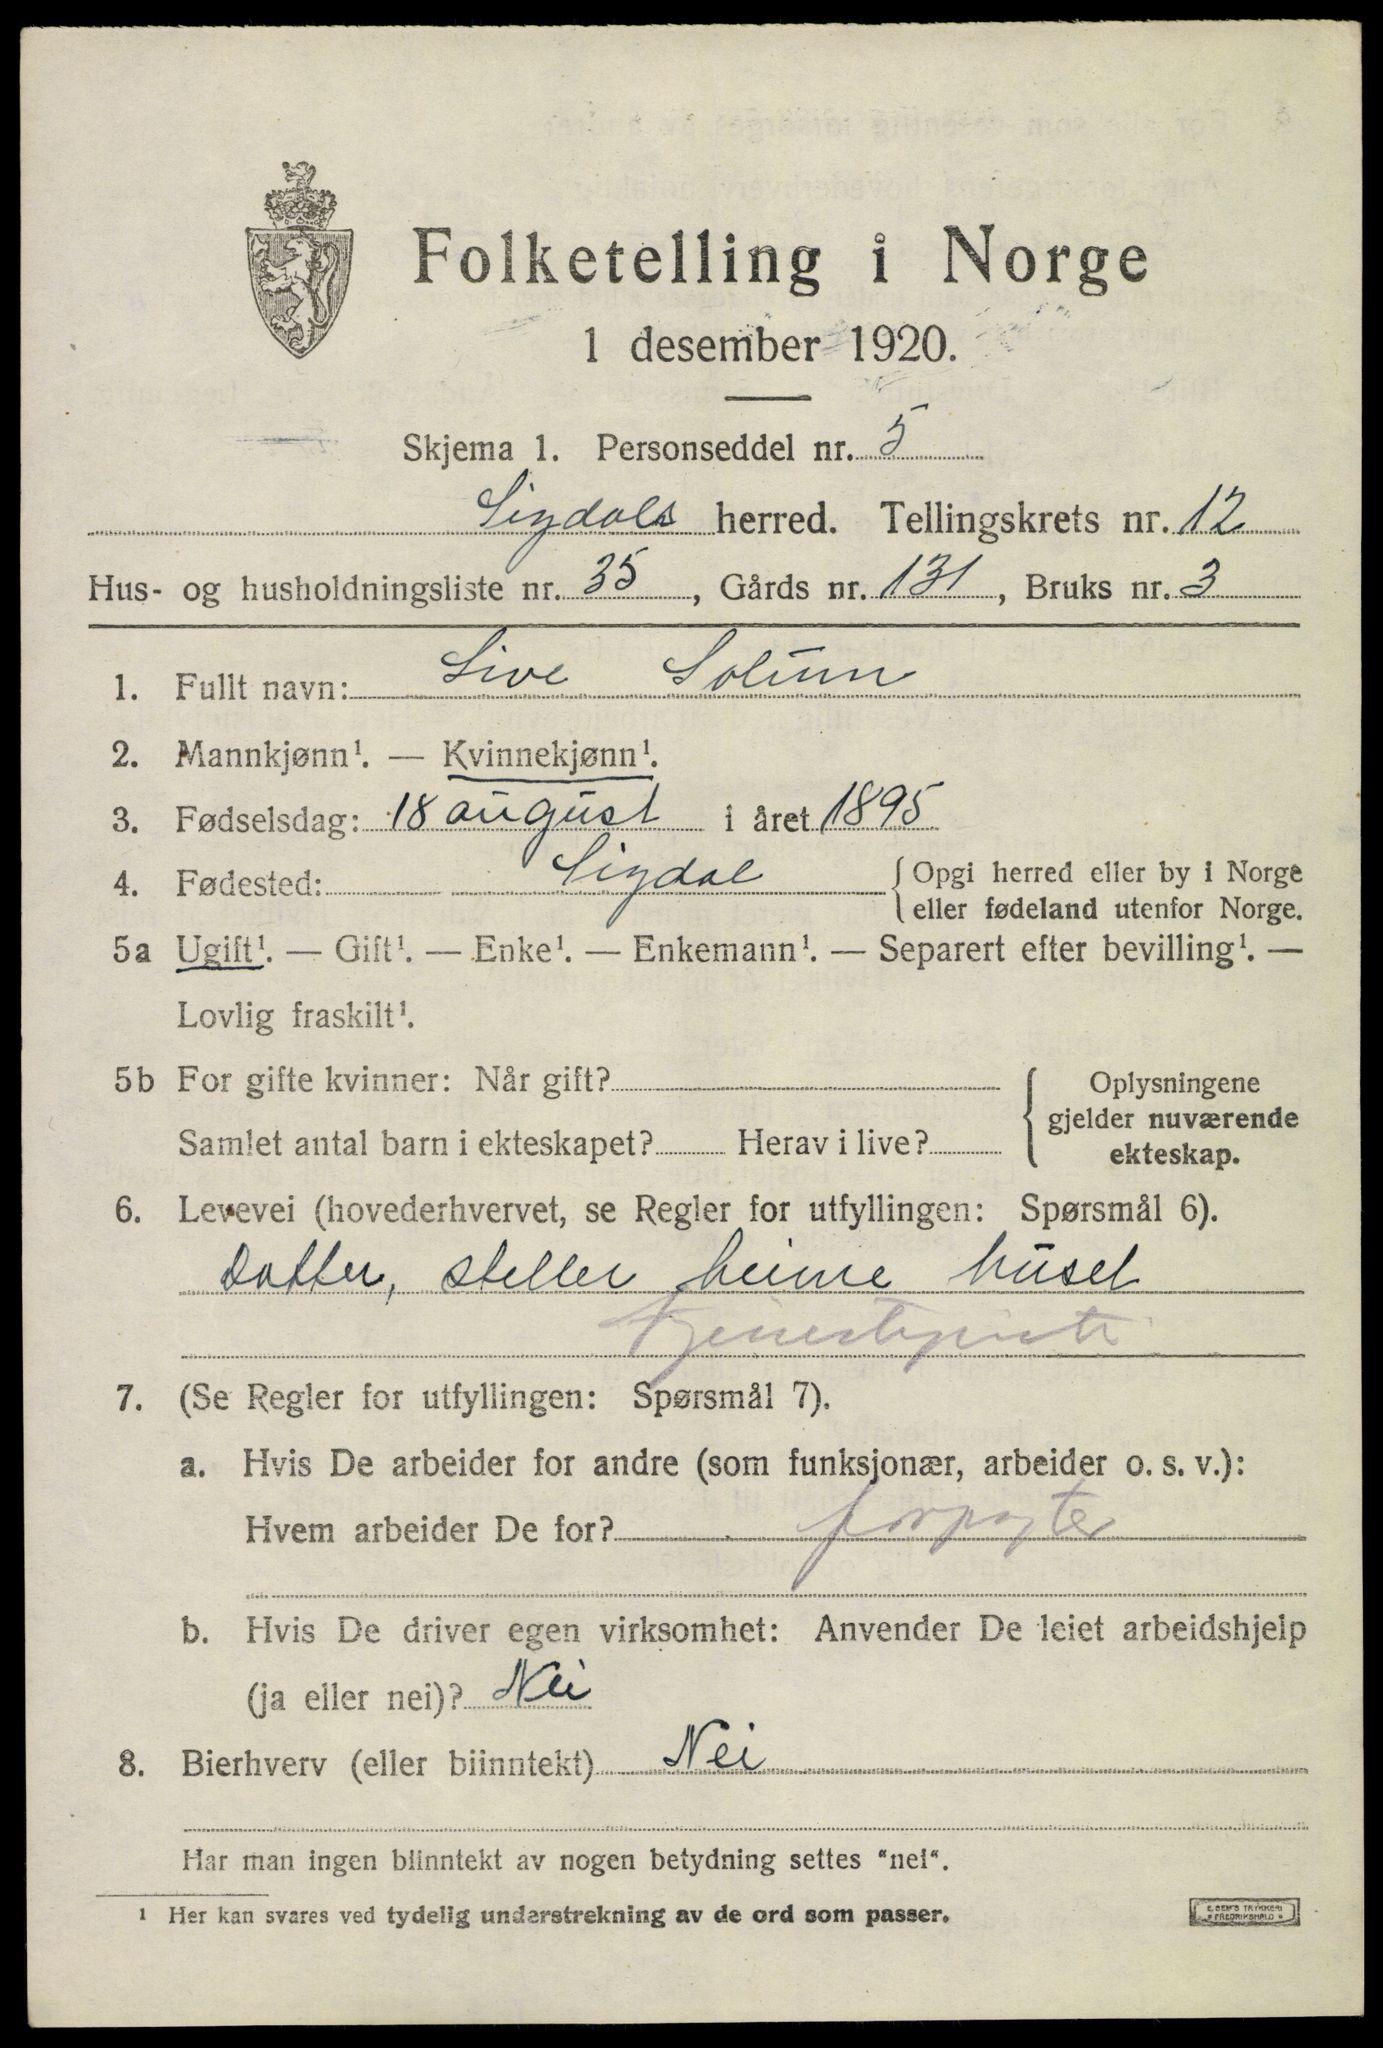 Folketelling i Norge
1 desember 1920.
Skjema 1. Personseddel nr. 5
Sigdals herred. Tellingskrets nr. 12
Hus- og husholdningsliste nr. 35, Gårds nr. 131, Bruks nr. 3
1. Fullt navn: Live Solum
2. Mannkjønn¹. — Kvinnekjønn¹.
3. Fødselsdag: 18 august i året 1895
4. Fødested: Sigdal { Opgi herred eller by i Norge
eller fødeland utenfor Norge.
5a Ugift¹. — Gift¹. — Enke¹. — Enkemann¹. — Separert efter bevilling¹. —
Lovlig fraskilt¹.
5b For gifte kvinner: Når gift? { Oplysningene
gjelder nuværende
Samlet antal barn i ekteskapet? Herav i live?
ekteskap.
6. Levevei (hovederhvervet, se Regler for utfyllingen: Spørsmål 6).
Datter, steller heime huset
7. (Se Regler for utfyllingen: Spørsmål 7).
a. Hvis De arbeider for andre (som funksjonær, arbeider o. s. v.):
Hvem arbeider De for? forpagter
b. Hvis De driver egen virksomhet: Anvender De leiet arbeidshjelp
(ja eller nei)? Nei
8. Bierhverv (eller biinntekt) Nei
Har man ingen biinntekt av nogen betydning settes "nei".
¹ Her kan svares ved tydelig understrekning av de ord som passer.
E. SEM'S TRYKKERI
FREDRIKSHALD